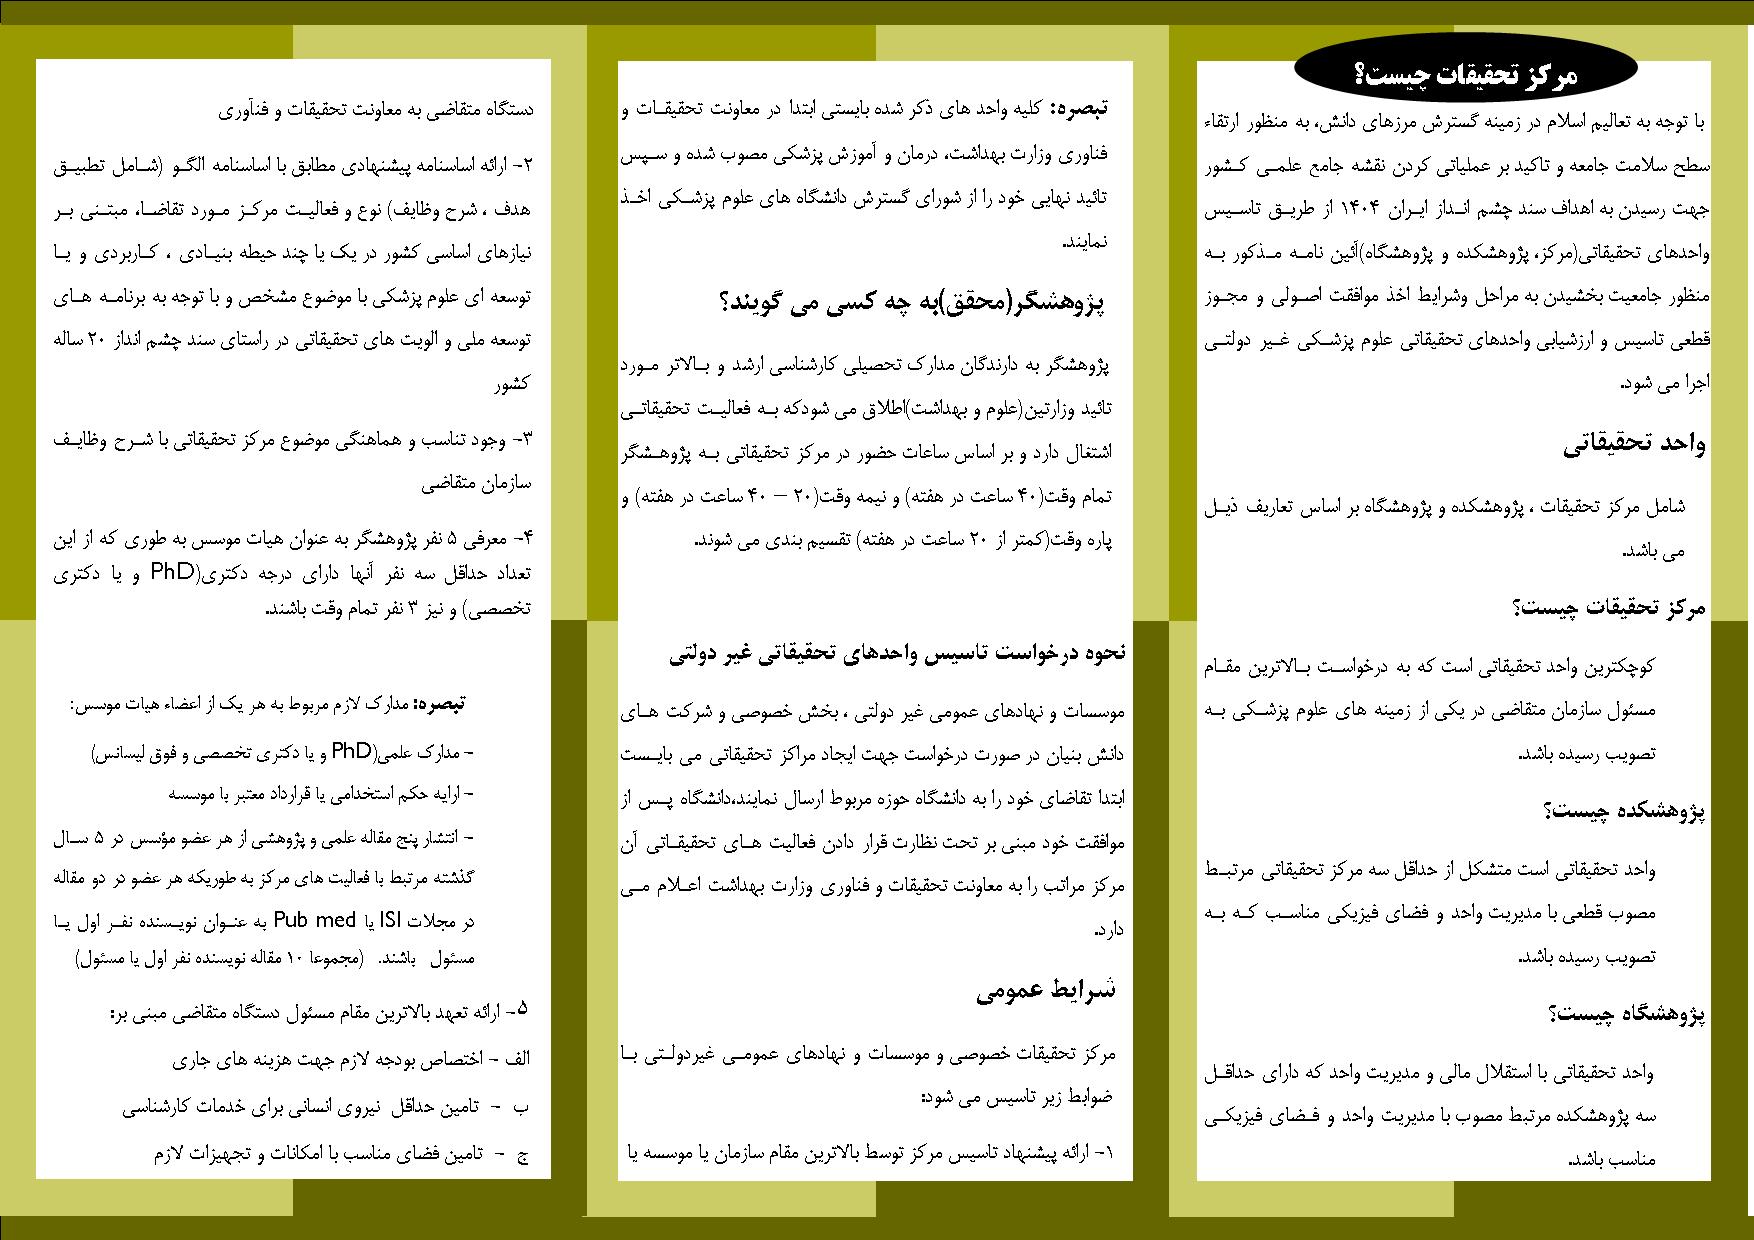 مرکز تحقیقات چیست؟
با توجه به تعالیم اسلام در زمینه گسترش مرزهای دانش، به منظور ارتقاء
سطح سلامت جامعه و تاکید بر عملیاتی کردن نقشه جامع علمی کشور
جهت رسیدن به اهداف سند چشم انداز ایران ۱۴۰۴ از طریق تاسیس
واحدهای تحقیقاتی(مرکز، پژوهشکده و پژوهشگاه)آئین نامه مذکور به
منظور جامعیت بخشیدن به مراحل وشرایط اخذ موافقت اصولی و مجوز
قطعی تاسیس و ارزشیابی واحدهای تحقیقاتی علوم پزشکی غیر دولتی
اجرا می شود.
واحد تحقیقاتی
شامل مرکز تحقیقات ، پژوهشکده و پژوهشگاه بر اساس تعاریف ذیل
می باشد.
مرکز تحقیقات چیست؟
کوچکترین واحد تحقیقاتی است که به درخواست بالاترین مقام
مسئول سازمان متقاضی در یکی از زمینه های علوم پزشکی به
تصویب رسیده باشد.
پژوهشکده چیست؟
واحد تحقیقاتی است متشکل از حداقل سه مرکز تحقیقاتی مرتبط
مصوب قطعی با مدیریت واحد و فضای فیزیکی مناسب که به
تصویب رسیده باشد.
پژوهشگاه چیست؟
واحد تحقیقاتی با استقلال مالی و مدیریت واحد که دارای حداقل
سه پژوهشکده مرتبط مصوب با مدیریت واحد و فضای فیزیکی
مناسب باشد.
تبصره: کلیه واحد های ذکر شده بایستی ابتدا در معاونت تحقیقات و
فناوری وزارت بهداشت، درمان و آموزش پزشکی مصوب شده و سپس
تائید نهایی خود را از شورای گسترش دانشگاه های علوم پزشکی اخذ
نمایند.
پژوهشگر(محقق)به چه کسی می گویند؟
پژوهشگر به دارندگان مدارک تحصیلی کارشناسی ارشد و بالاتر مورد
تائید وزارتین(علوم و بهداشت)اطلاق می شودکه به فعالیت تحقیقاتی
اشتغال دارد و بر اساس ساعات حضور در مرکز تحقیقاتی به پژوهشگر
تمام وقت(۴۰ ساعت در هفته) و نیمه وقت(۲۰ – ۴۰ ساعت در هفته) و
پاره وقت(کمتر از ۲۰ ساعت در هفته) تقسیم بندی می شوند.
نحوه درخواست تاسیس واحدهای تحقیقاتی غیر دولتی
موسسات و نهادهای عمومی غیر دولتی ، بخش خصوصی و شرکت های
دانش بنیان در صورت درخواست جهت ایجاد مراکز تحقیقاتی می بایست
ابتدا تقاضای خود را به دانشگاه حوزه مربوط ارسال نمایند،دانشگاه پس از
موافقت خود مبنی بر تحت نظارت قرار دادن فعالیت های تحقیقاتی آن
مرکز مراتب را به معاونت تحقیقات و فناوری وزارت بهداشت اعلام می
دارد.
شرایط عمومی
مرکز تحقیقات خصوصی و موسسات و نهادهای عمومی غیردولتی با
ضوابط زیر تاسیس می شود:
۱- ارائه پیشنهاد تاسیس مرکز توسط بالاترین مقام سازمان یا موسسه یا
دستگاه متقاضی به معاونت تحقیقات و فنآوری
۲- ارائه اساسنامه پیشنهادی مطابق با اساسنامه الگو (شامل تطبیق
هدف ، شرح وظایف) نوع و فعالیت مرکز مورد تقاضا، مبتنی بر
نیازهای اساسی کشور در یک یا چند حیطه بنیادی ، کاربردی و یا
توسعه ای علوم پزشکی با موضوع مشخص و با توجه به برنامه های
توسعه ملی و الویت های تحقیقاتی در راستای سند چشم انداز ۲۰ ساله
کشور
۳- وجود تناسب و هماهنگی موضوع مرکز تحقیقاتی با شرح وظایف
سازمان متقاضی
۴- معرفی ۵ نفر پژوهشگر به عنوان هیات موسس به طوری که از این
تعداد حداقل سه نفر آنها دارای درجه دکتری(PhD و یا دکتری
تخصصی) و نیز ۳ نفر تمام وقت باشند.
تبصره: مدارک لازم مربوط به هر یک از اعضاء هیات موسس:
- مدارک علمی(PhD و یا دکتری تخصصی و فوق لیسانس)
- ارایه حکم استخدامی یا قرارداد معتبر با موسسه
- انتشار پنج مقاله علمی و پژوهشی از هر عضو مؤسس در ۵ سال
گذشته مرتبط با فعالیت های مرکز به طوریکه هر عضو در دو مقاله
در مجلات ISI یا Pub med به عنوان نویسنده نفر اول یا
مسئول باشند. (مجموعا ۱۰ مقاله نویسنده نفر اول یا مسئول)
۵- ارائه تعهد بالاترین مقام مسئول دستگاه متقاضی مبنی بر:
الف - اختصاص بودجه لازم جهت هزینه های جاری
ب - تامین حداقل نیروی انسانی برای خدمات کارشناسی
ج - تامین فضای مناسب با امکانات و تجهیزات لازم